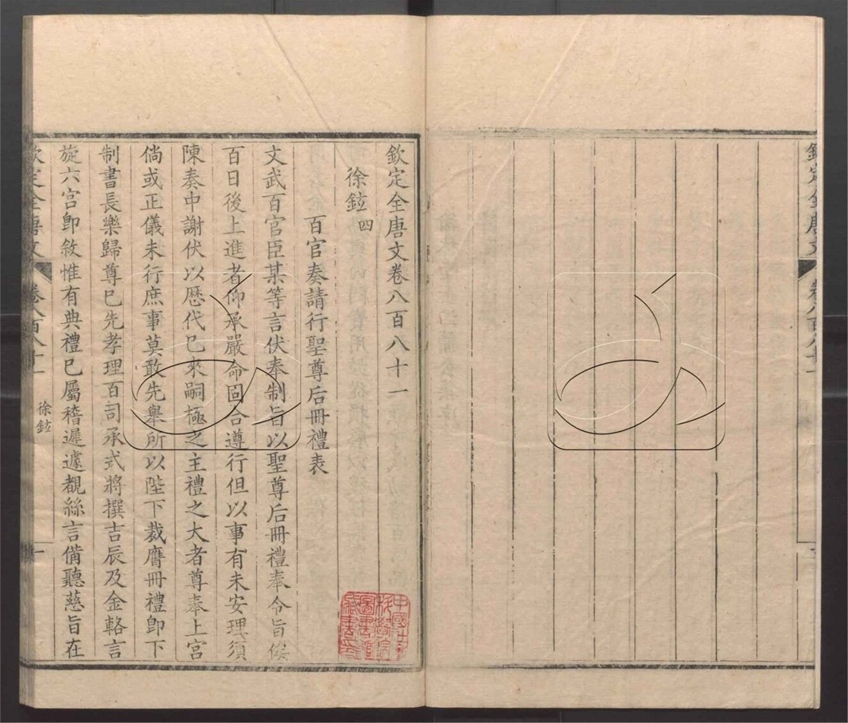 欽定全唐文
卷八百八十一
欽定全唐文卷八百八十一
徐鉉四
百官奏請行聖尊后冊禮表
文武百官臣某等言伏奉制旨以聖尊后冊禮奉令旨候
百日後上進者仰承嚴命固合遵行但以事有未安理須
陳奏中謝伏以歷代已來嗣極之主禮之大者尊奉上宮
倘或正儀未行庶事莫敢先舉所以陛下裁膺冊禮卽下
制書長樂歸尊已先孝理百司承式將撰吉辰及金輅言
旋六宮卽敘惟有典禮已屬稽遲遽覩絲言備聽慈旨在
欽定全唐文
卷八百八十一
徐鉉
一